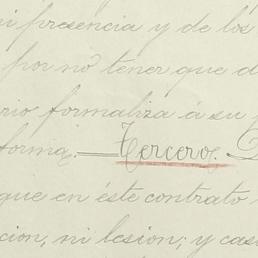 presencia y de los
por no tener que d
rio formaliza á su
forma. — Tercero.
que en éste contrato
cion, ni lesion; y cas